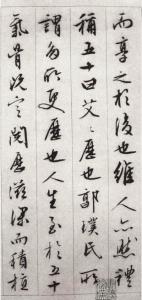 而享之於後也維人亦然禮
稱五十曰艾艾歷也郭璞氏所
謂多所更歷也人生至於五十
氣骨既定閱歷滋深而積植